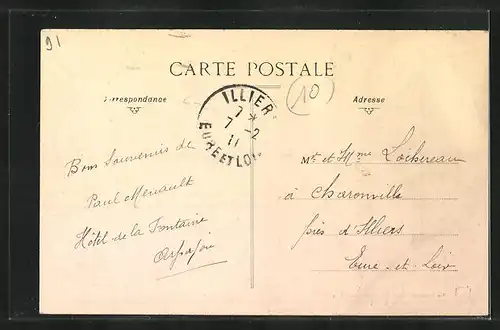 91
CARTE POSTALE
Correspondance
Adresse
(10)
ILLIERS
7 *
7 -2
11
EURE ET LOIR
Bons Souvenirs de
Paul Menault
Hôtel de la Fontaine
Arpajon
Mr et Mme Loichereau
à Charonville
près d'Illiers
Eure-et-Loir